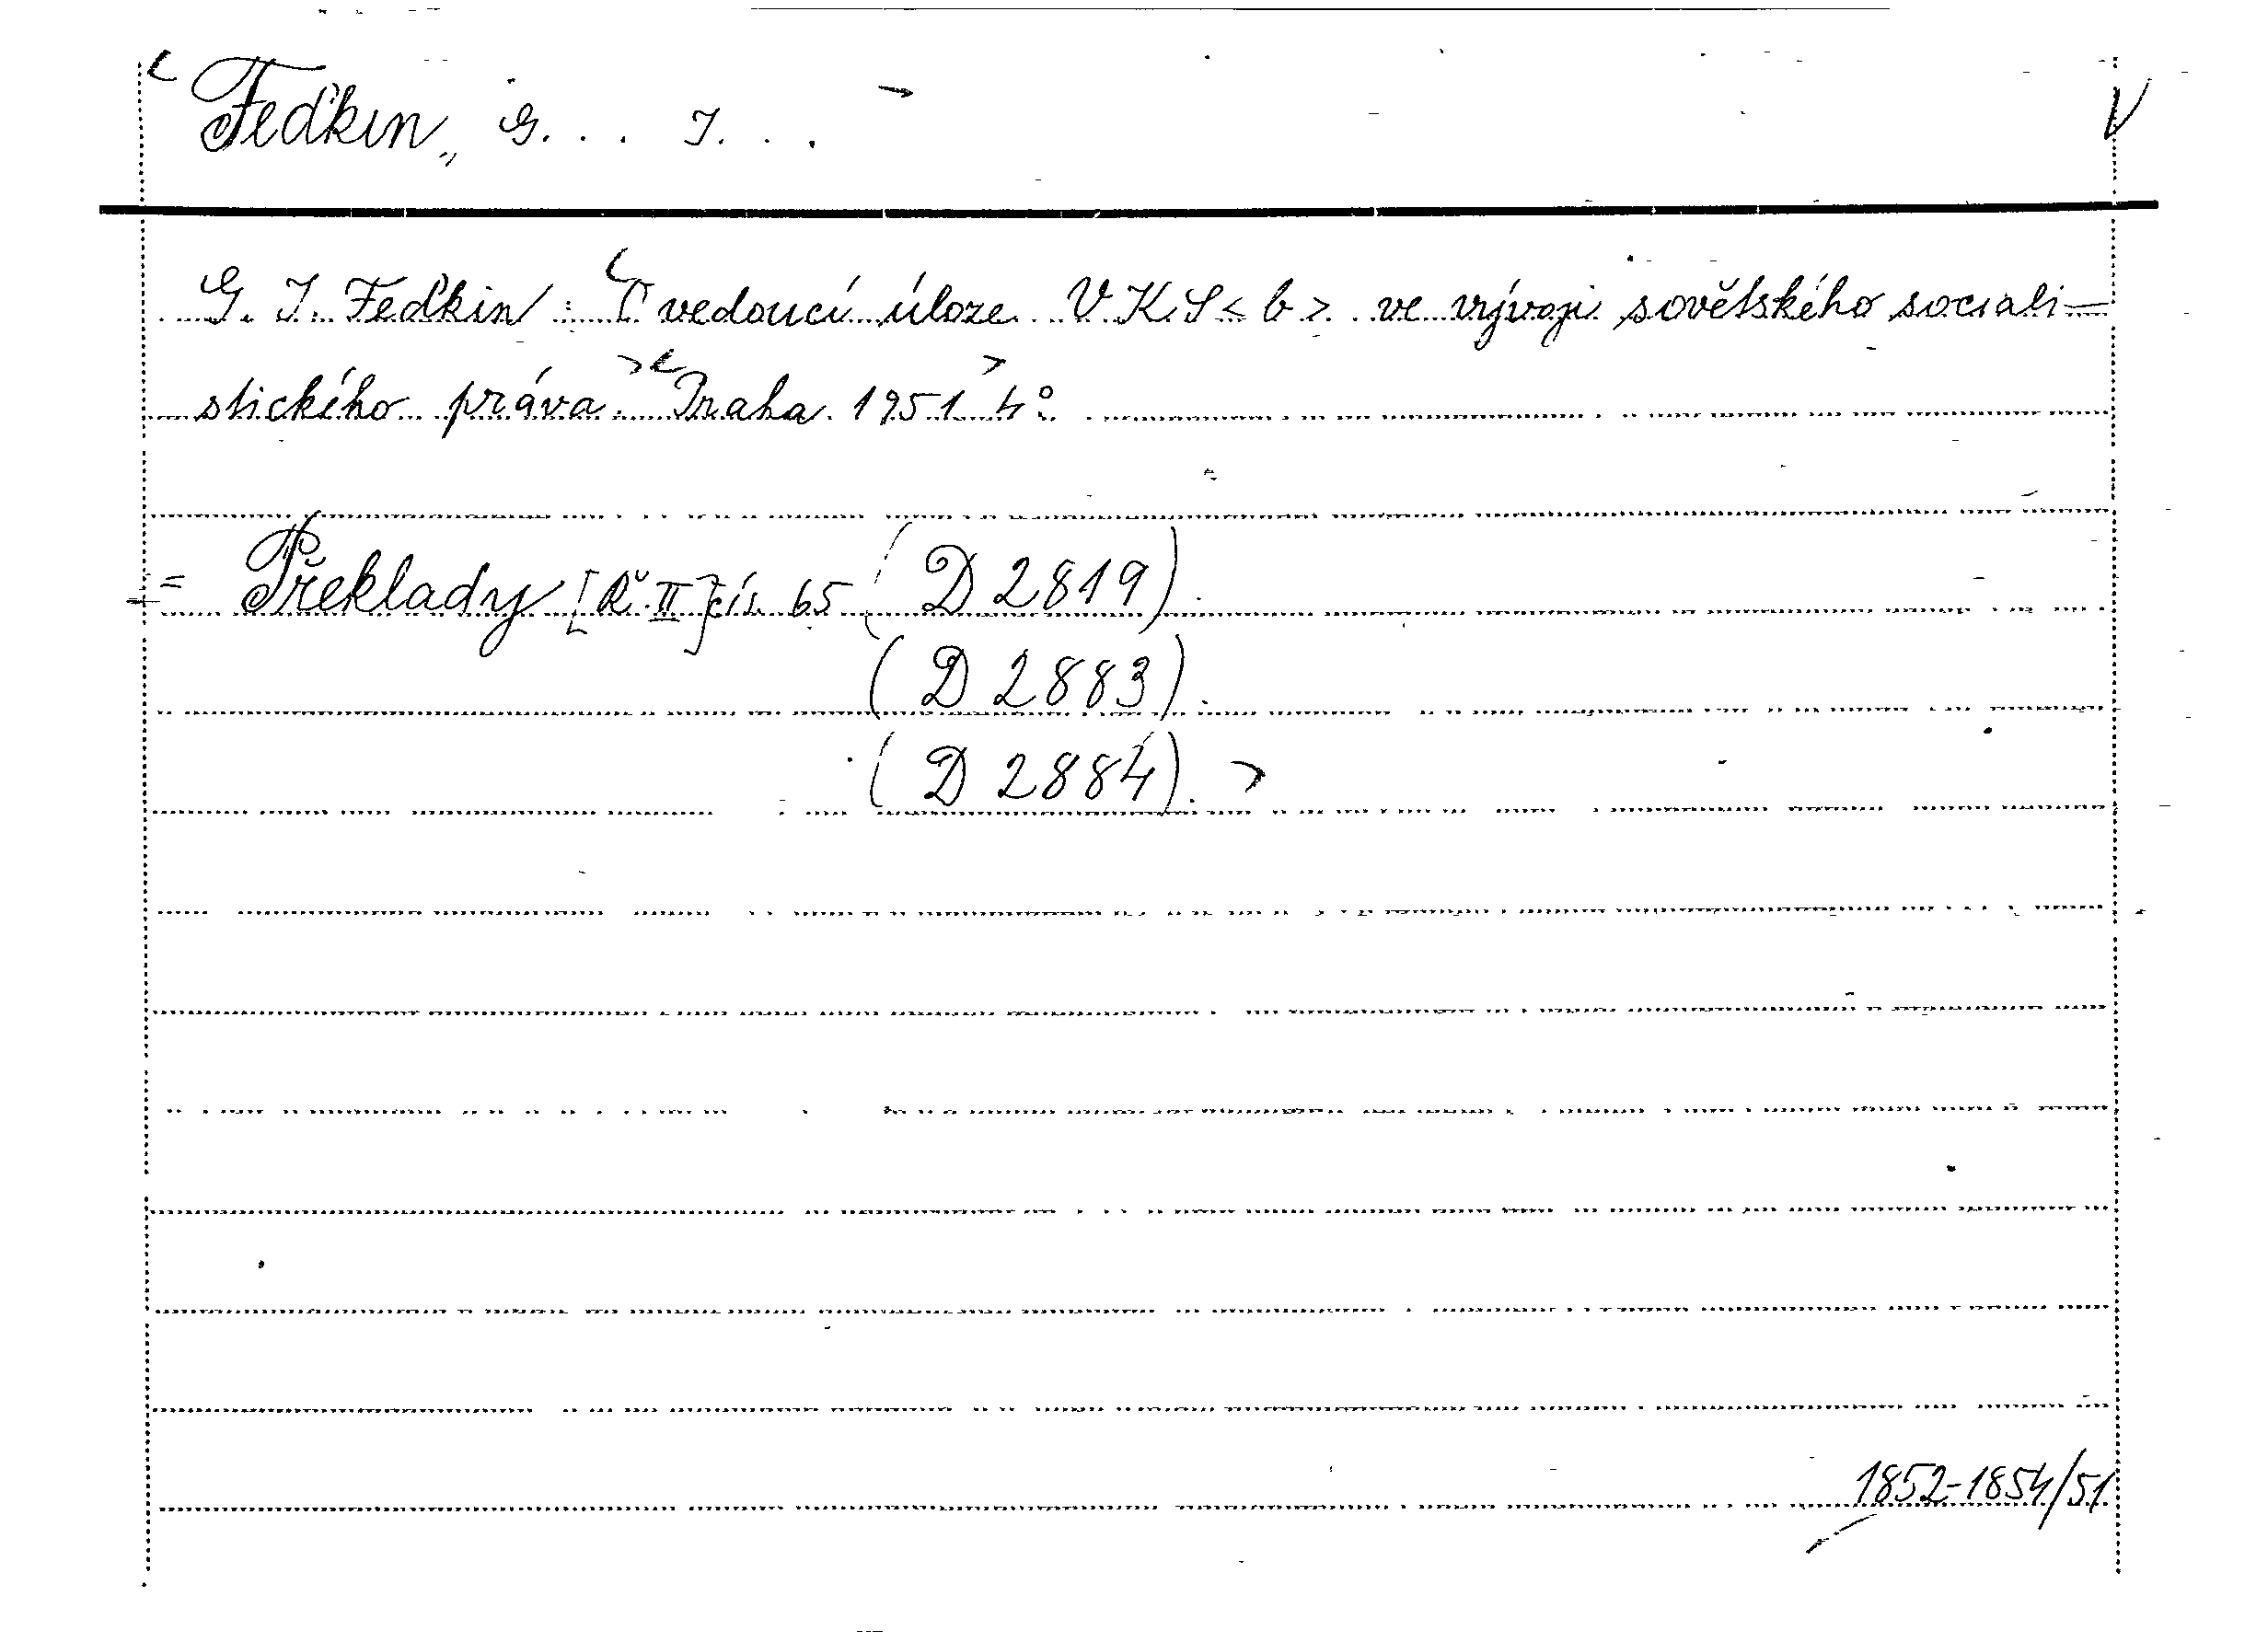 Feďkin, G... I...
G. I. Feďkin: O vedoucí úloze VKS<b> ve vývoji sovětského sociali-
stického práva. Praha 1951 4°.
= Překlady [Ř. II] čís. 65 (D 2819).
(D 2883).
(D 2884).
1852-1854/51